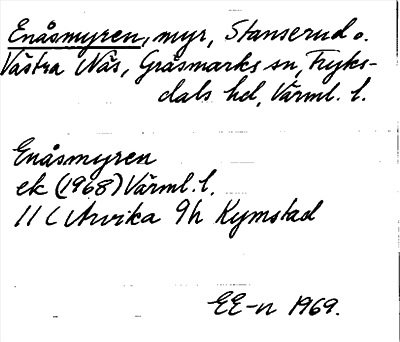 Enåsmyren, myr, Stanserud o.
Västra Näs, Gräsmarks sn, Fryks-
dals hd, Värml. l.
Enåsmyren
ek (1968) Värml. l.
11 C Arvika 9h Kymstad
EE-n 1969.